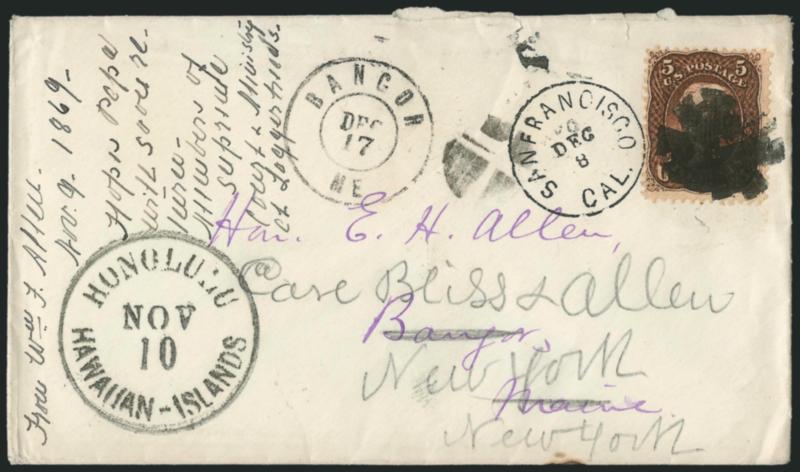 From Wm F. Allen.
Nov. 9. 1869-
Hopes Papa
will soon re-
turn-
Members of
supreme
court & Ministry
at Loggerheads.
BANGOR
DEC
17
ME.
SAN FRANCISCO
DEC
8
CAL.
5 U.S. POSTAGE 5
Hon. E. H. Allen,
Care Bliss & Allen
Bangor,
New York
Maine
New York
HONOLULU
NOV
10
HAWAIIAN-ISLANDS